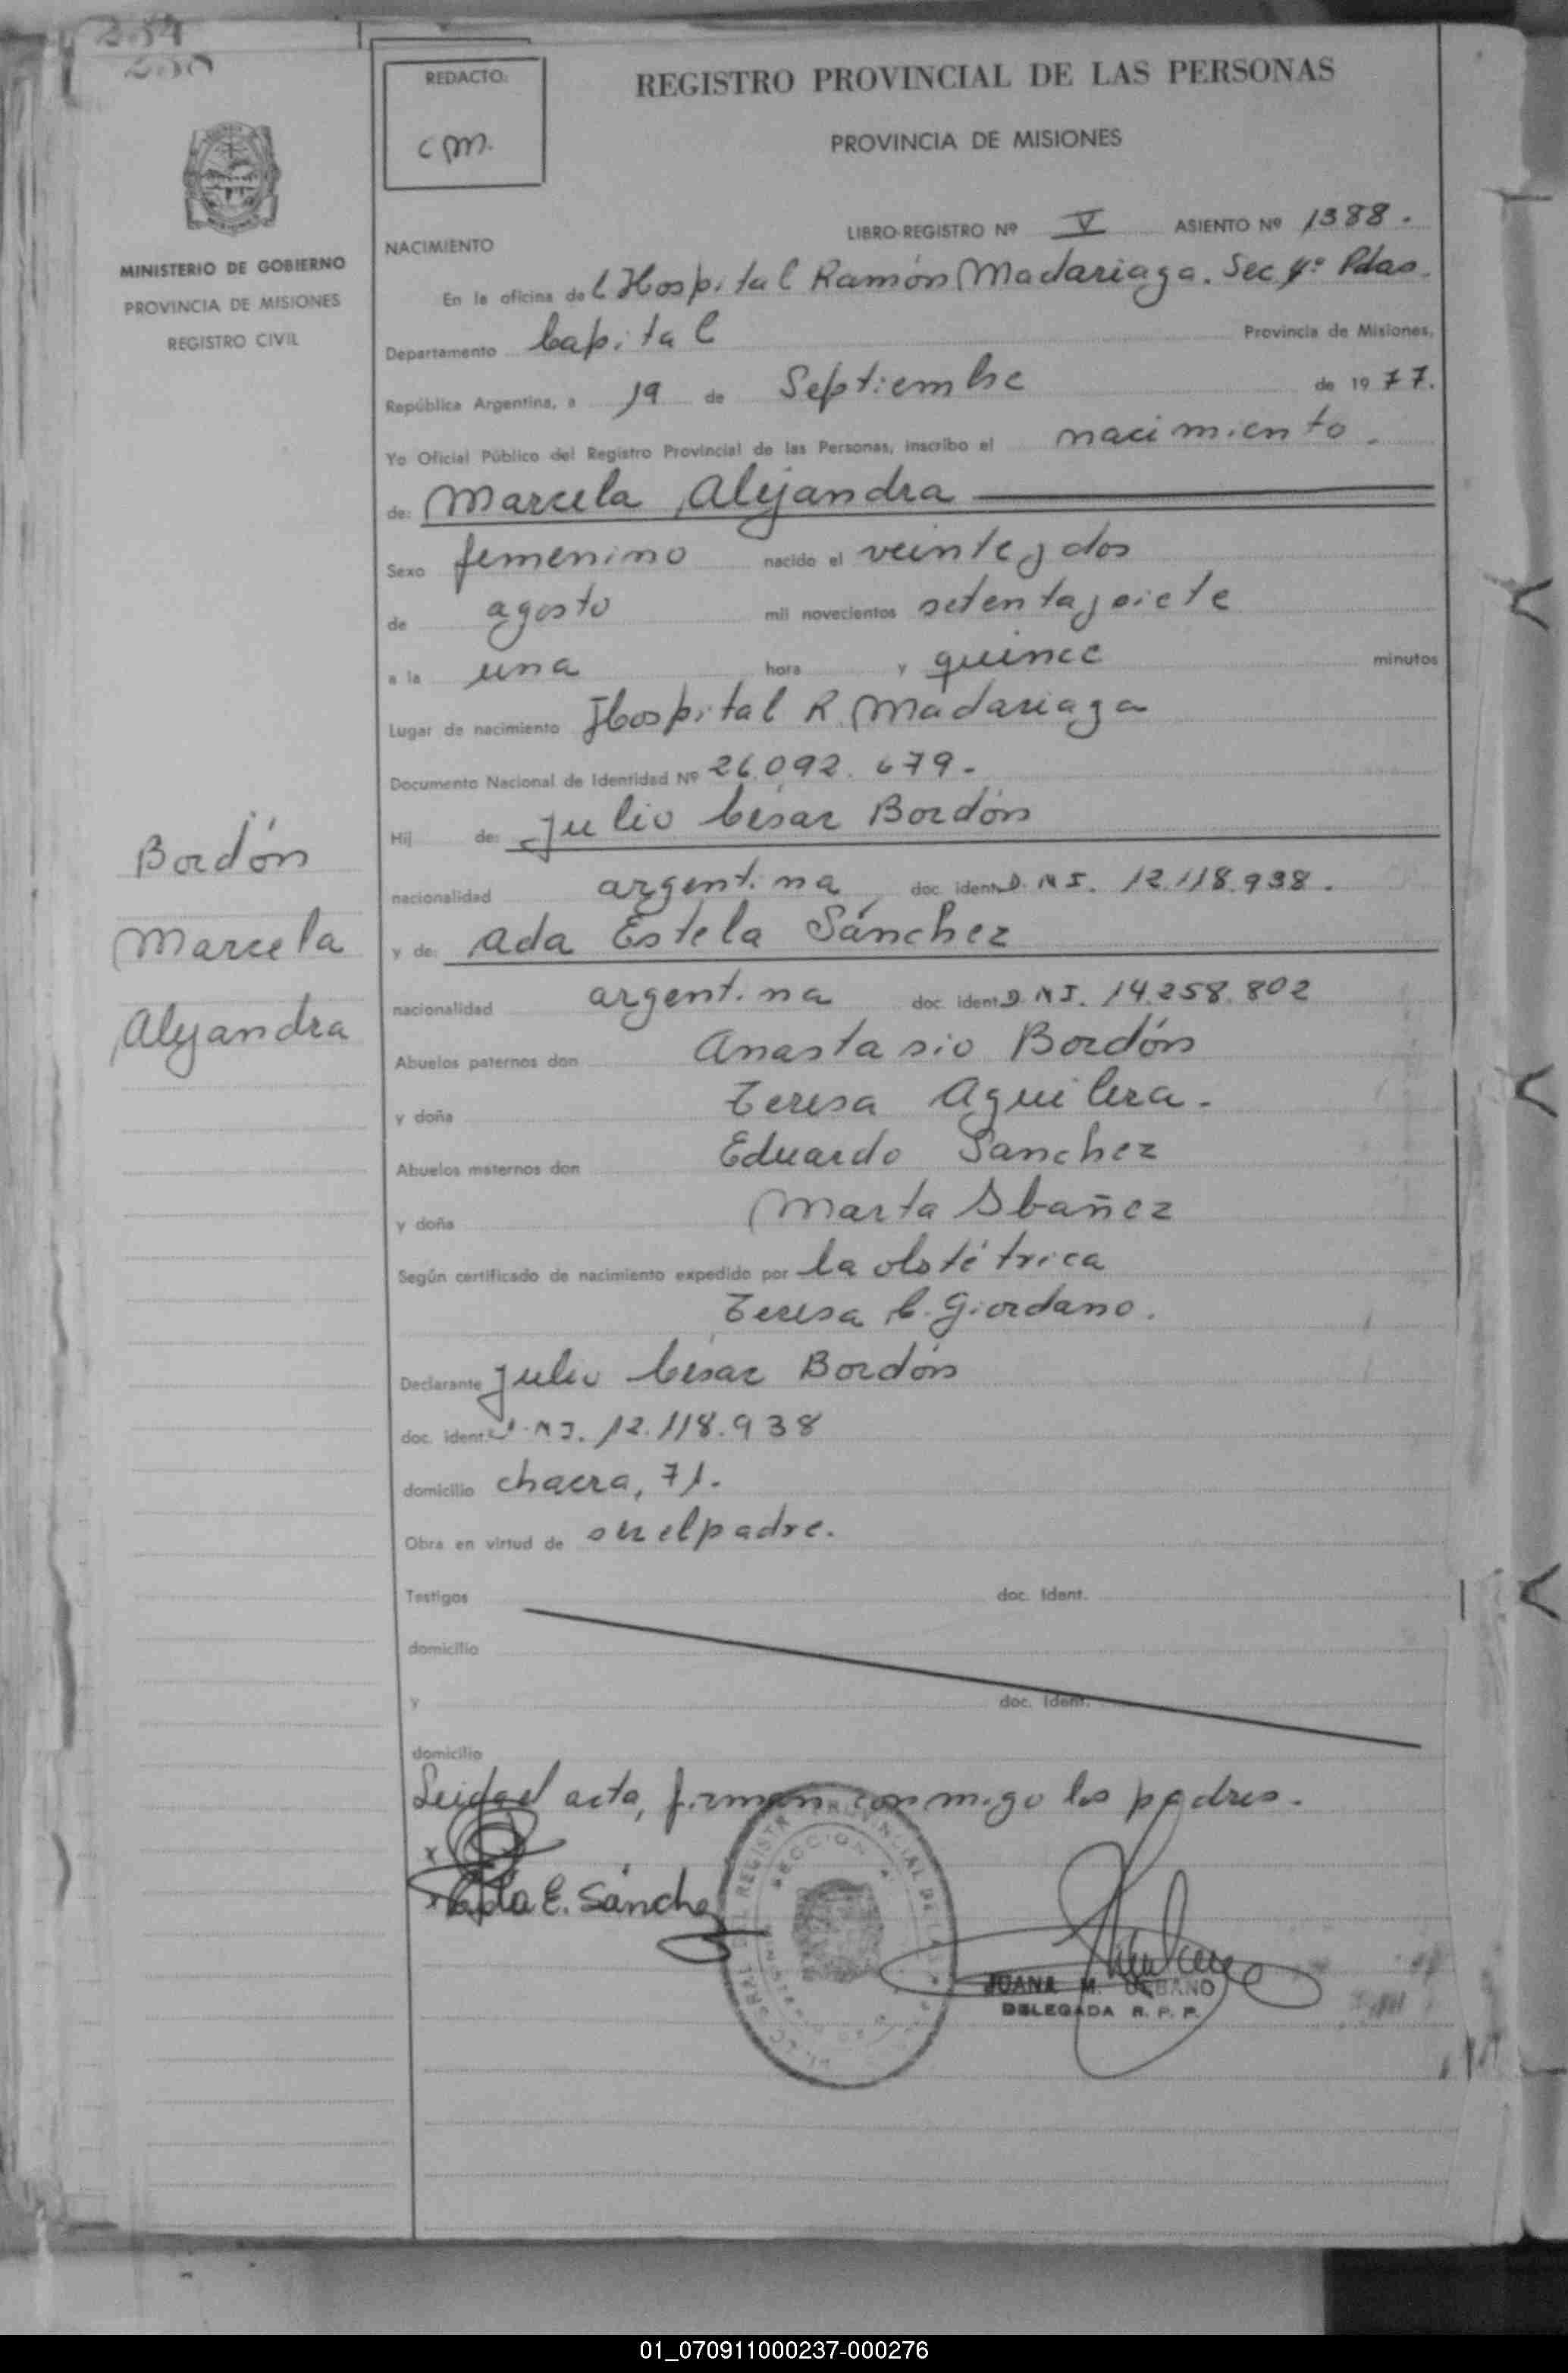 234
230
REDACTO:
cm.
REGISTRO PROVINCIAL DE LAS PERSONAS
PROVINCIA DE MISIONES
MINISTERIO DE GOBIERNO
PROVINCIA DE MISIONES
REGISTRO CIVIL
NACIMIENTO
LIBRO-REGISTRO Nº V ASIENTO Nº 1388.
En la oficina del Hospital Ramón Madariaga. Sec 4º Pdas.
Departamento Capital Provincia de Misiones,
República Argentina, a 19 de Septiembre de 1977.
Yo Oficial Público del Registro Provincial de las Personas, inscribo el nacimiento.
de: Marcela Alejandra
Sexo femenino nacido el veinte y dos
de agosto mil novecientos setenta y siete
a la una hora y quince minutos
Lugar de nacimiento Hospital R. Madariaga
Documento Nacional de Identidad Nº 26.092.679.-
Hij de: Julio César Bordón
nacionalidad argentina doc. ident. D.N.I. 12.118.938.
y de: Ada Estela Sánchez
nacionalidad argentina doc. ident. D.N.I. 14.258.802
Abuelos paternos don Anastasio Bordón
y doña Teresa Aguilera.
Abuelos maternos don Eduardo Sanchez
y doña Marta Ibañez
Según certificado de nacimiento expedido por la obstétrica
Teresa C. Giordano.
Declarante Julio César Bordón
doc. ident. D.N.I. 12.118.938
domicilio chacra, 71.
Obra en virtud de ser el padre.
Testigos doc. Ident.
domicilio
y doc. Ident.
domicilio
Leida el acta, firman conmigo los padres.
Bordón
Marcela
Alejandra
x
x Ada E. Sánchez
REGISTRO PROVINCIAL DE LAS
SECCION 4
JUANA M. URBANO
DELEGADA R. P. P.
01_070911000237-000276